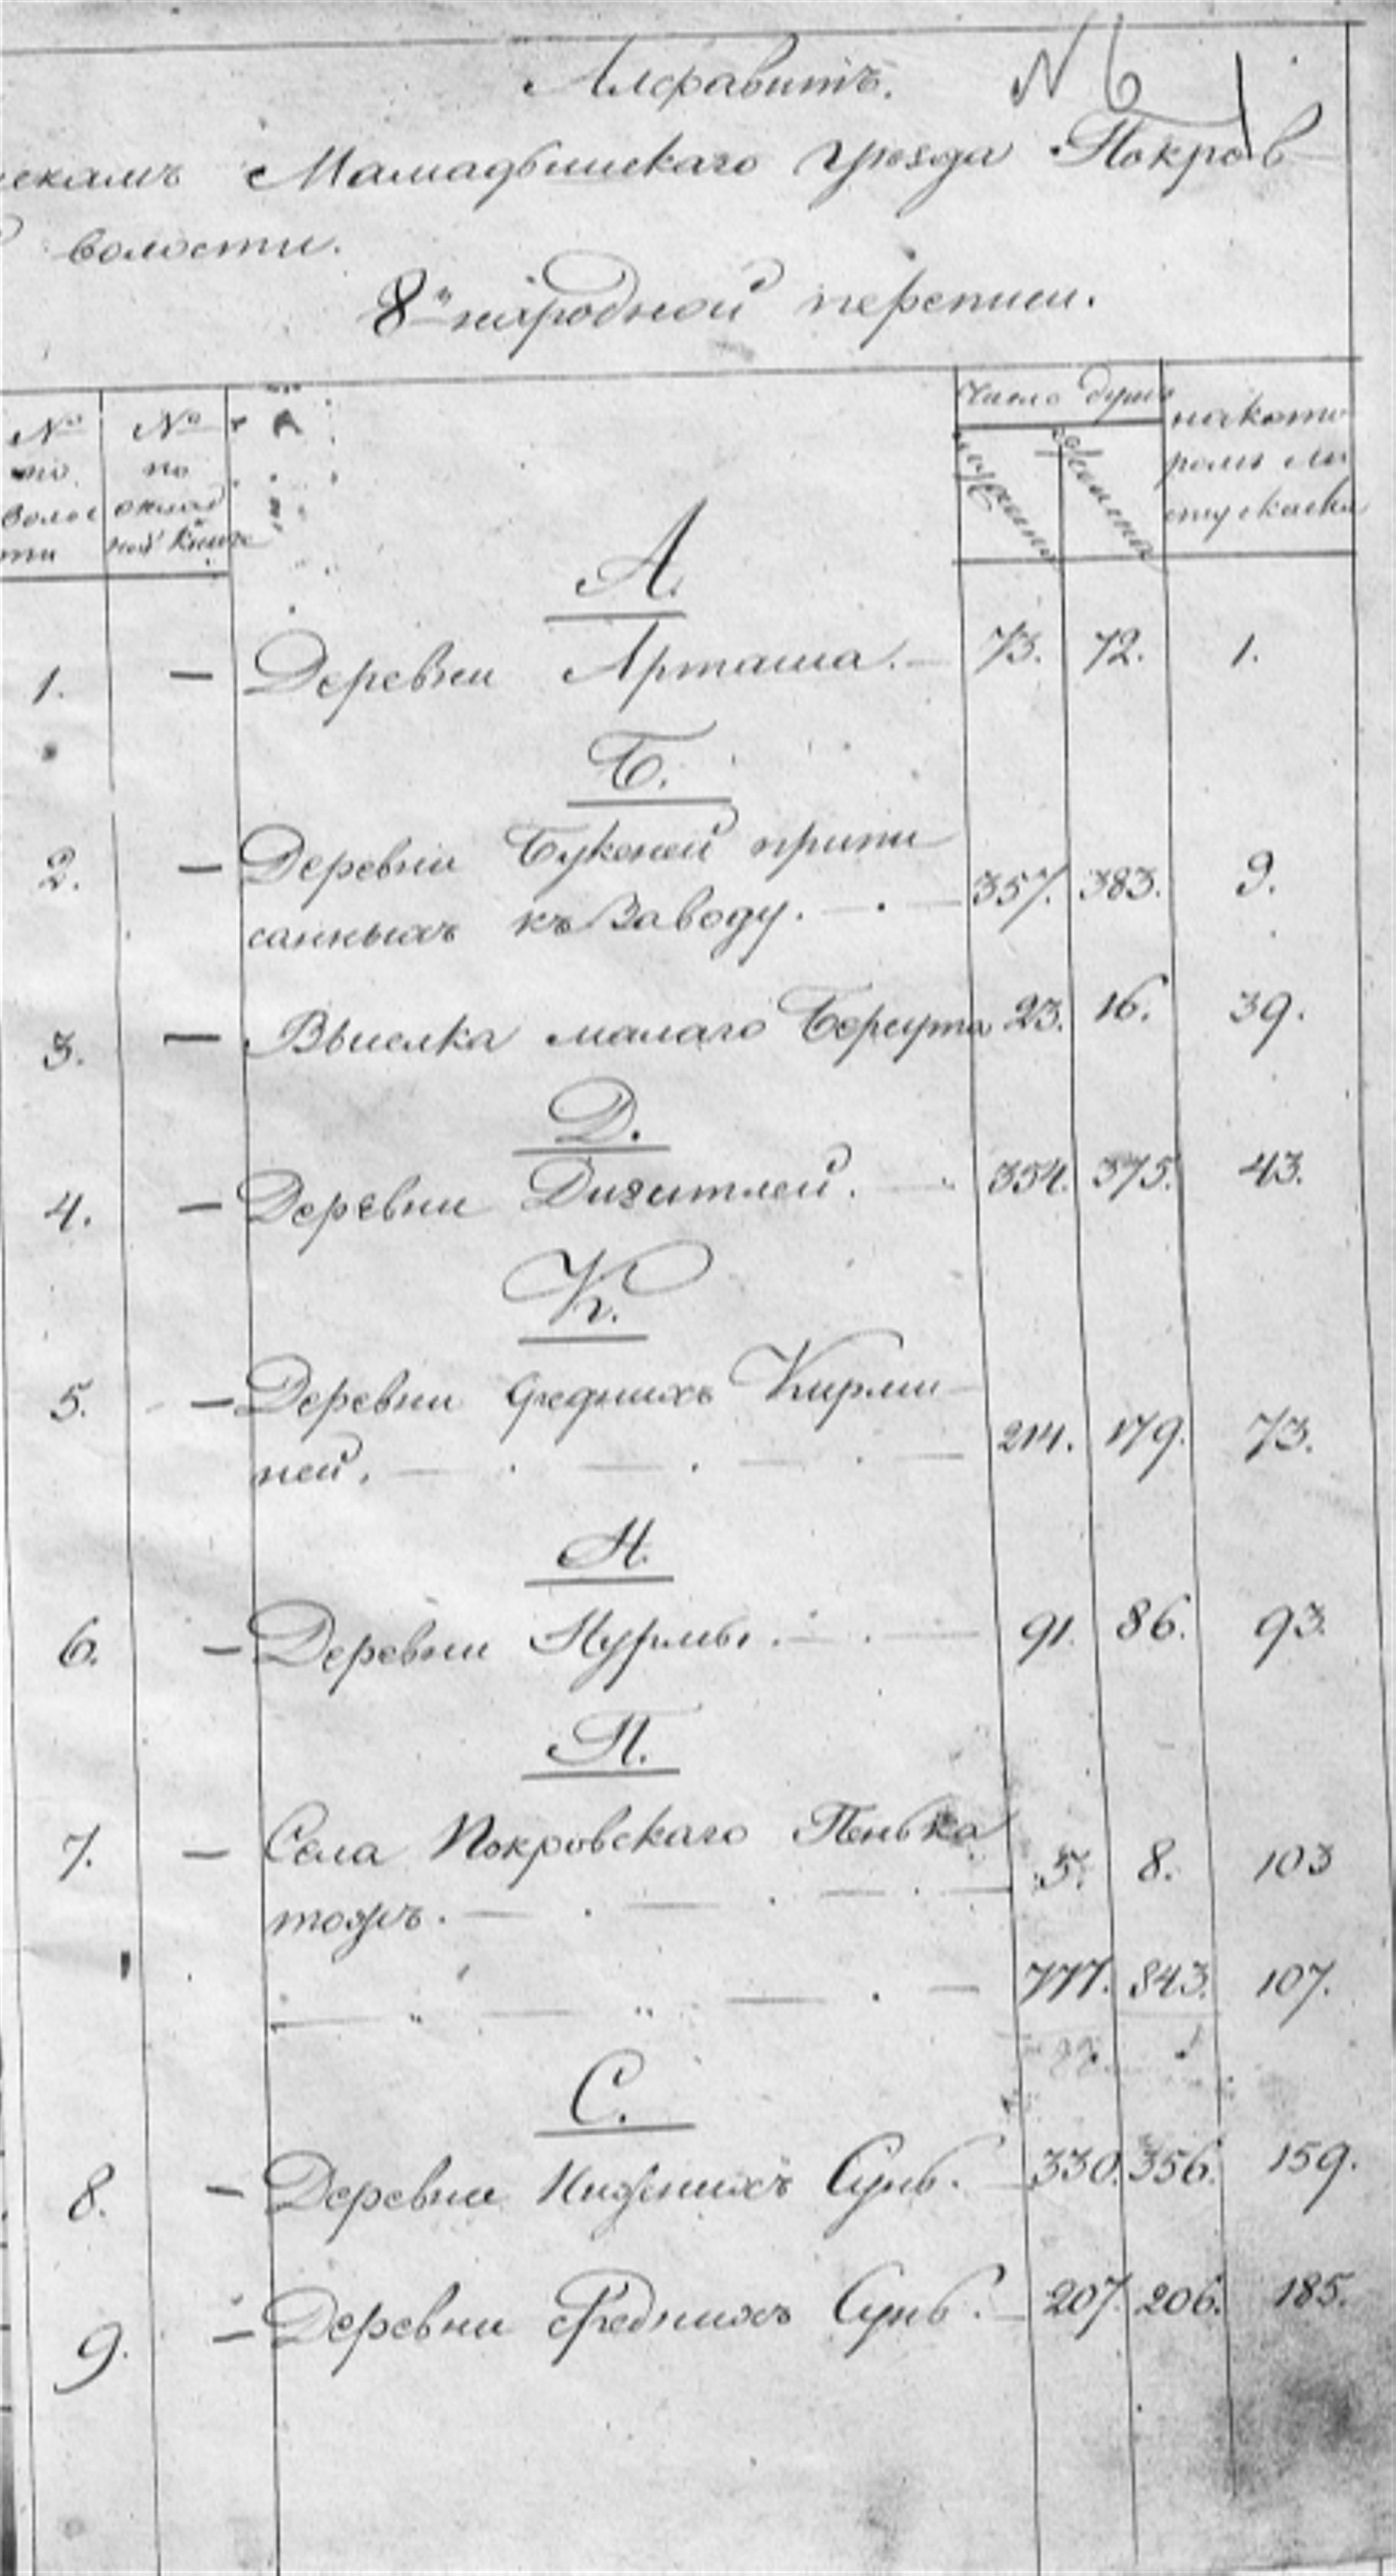 Алфавитъ. N 6
Мамадышскаго уѣзда Покров
волости.
8й народной переписи.
Число душъ
№ по волос ти
№ по оклад ной книге
мужска
женска
на кото ромъ ли сту сказка
А.
1. — Деревни Арташа. — 73. 72. 1.
Б.
2. — Деревни Букеней припи
санныхъ къ Заводу. — . — 357. 383. 9.
3. — Выселка малаго Берсута 23. 16. 39.
Д.
4. — Деревни Дигитлей. — 354. 375. 43.
К.
5. — Деревни Среднихъ Кирме
ней. — . — . — . — 214. 179. 73.
Н.
6. — Деревни Нурмы. — . — 91. 86. 93.
П.
7. — Села Покровскаго Пенька
тожъ. — . — . — . — 5. 8. 103
— „ — „ — . — 777. 843. 107.
С.
8. — Деревни Нижнихъ Сунь. 330. 356. 159.
9. — Деревни Среднихъ Сунь. — 207. 206. 185.